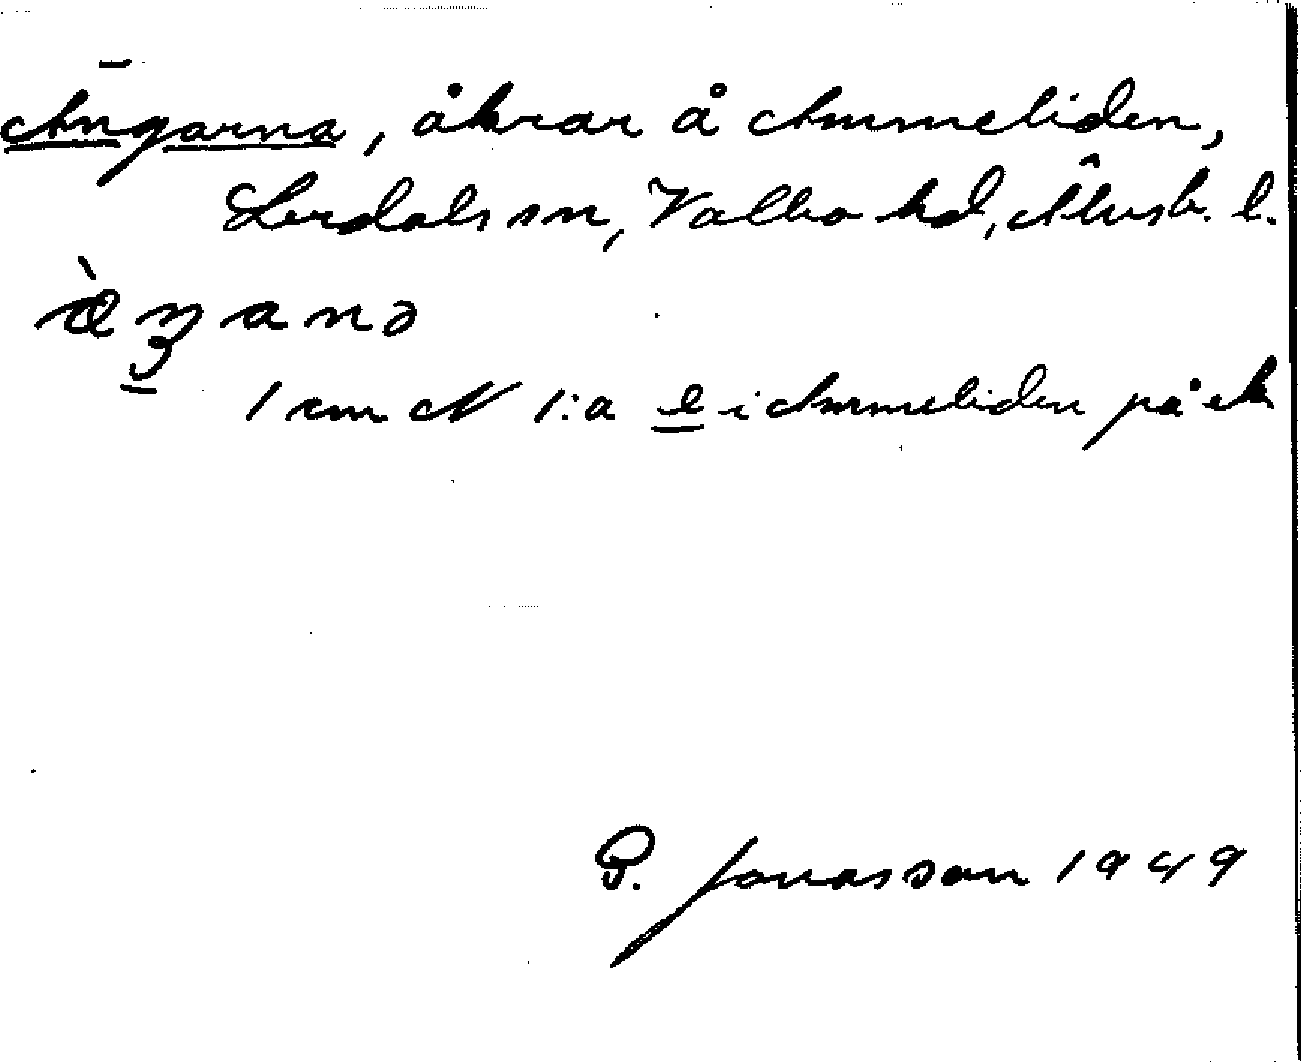 Ängarna, åkrar å Ammeliden,
Lerdals sn, Valbo hd, Älvsb. l.
1 cm N 1:a e i Ammeliden på ek
P. Jonasson 1949